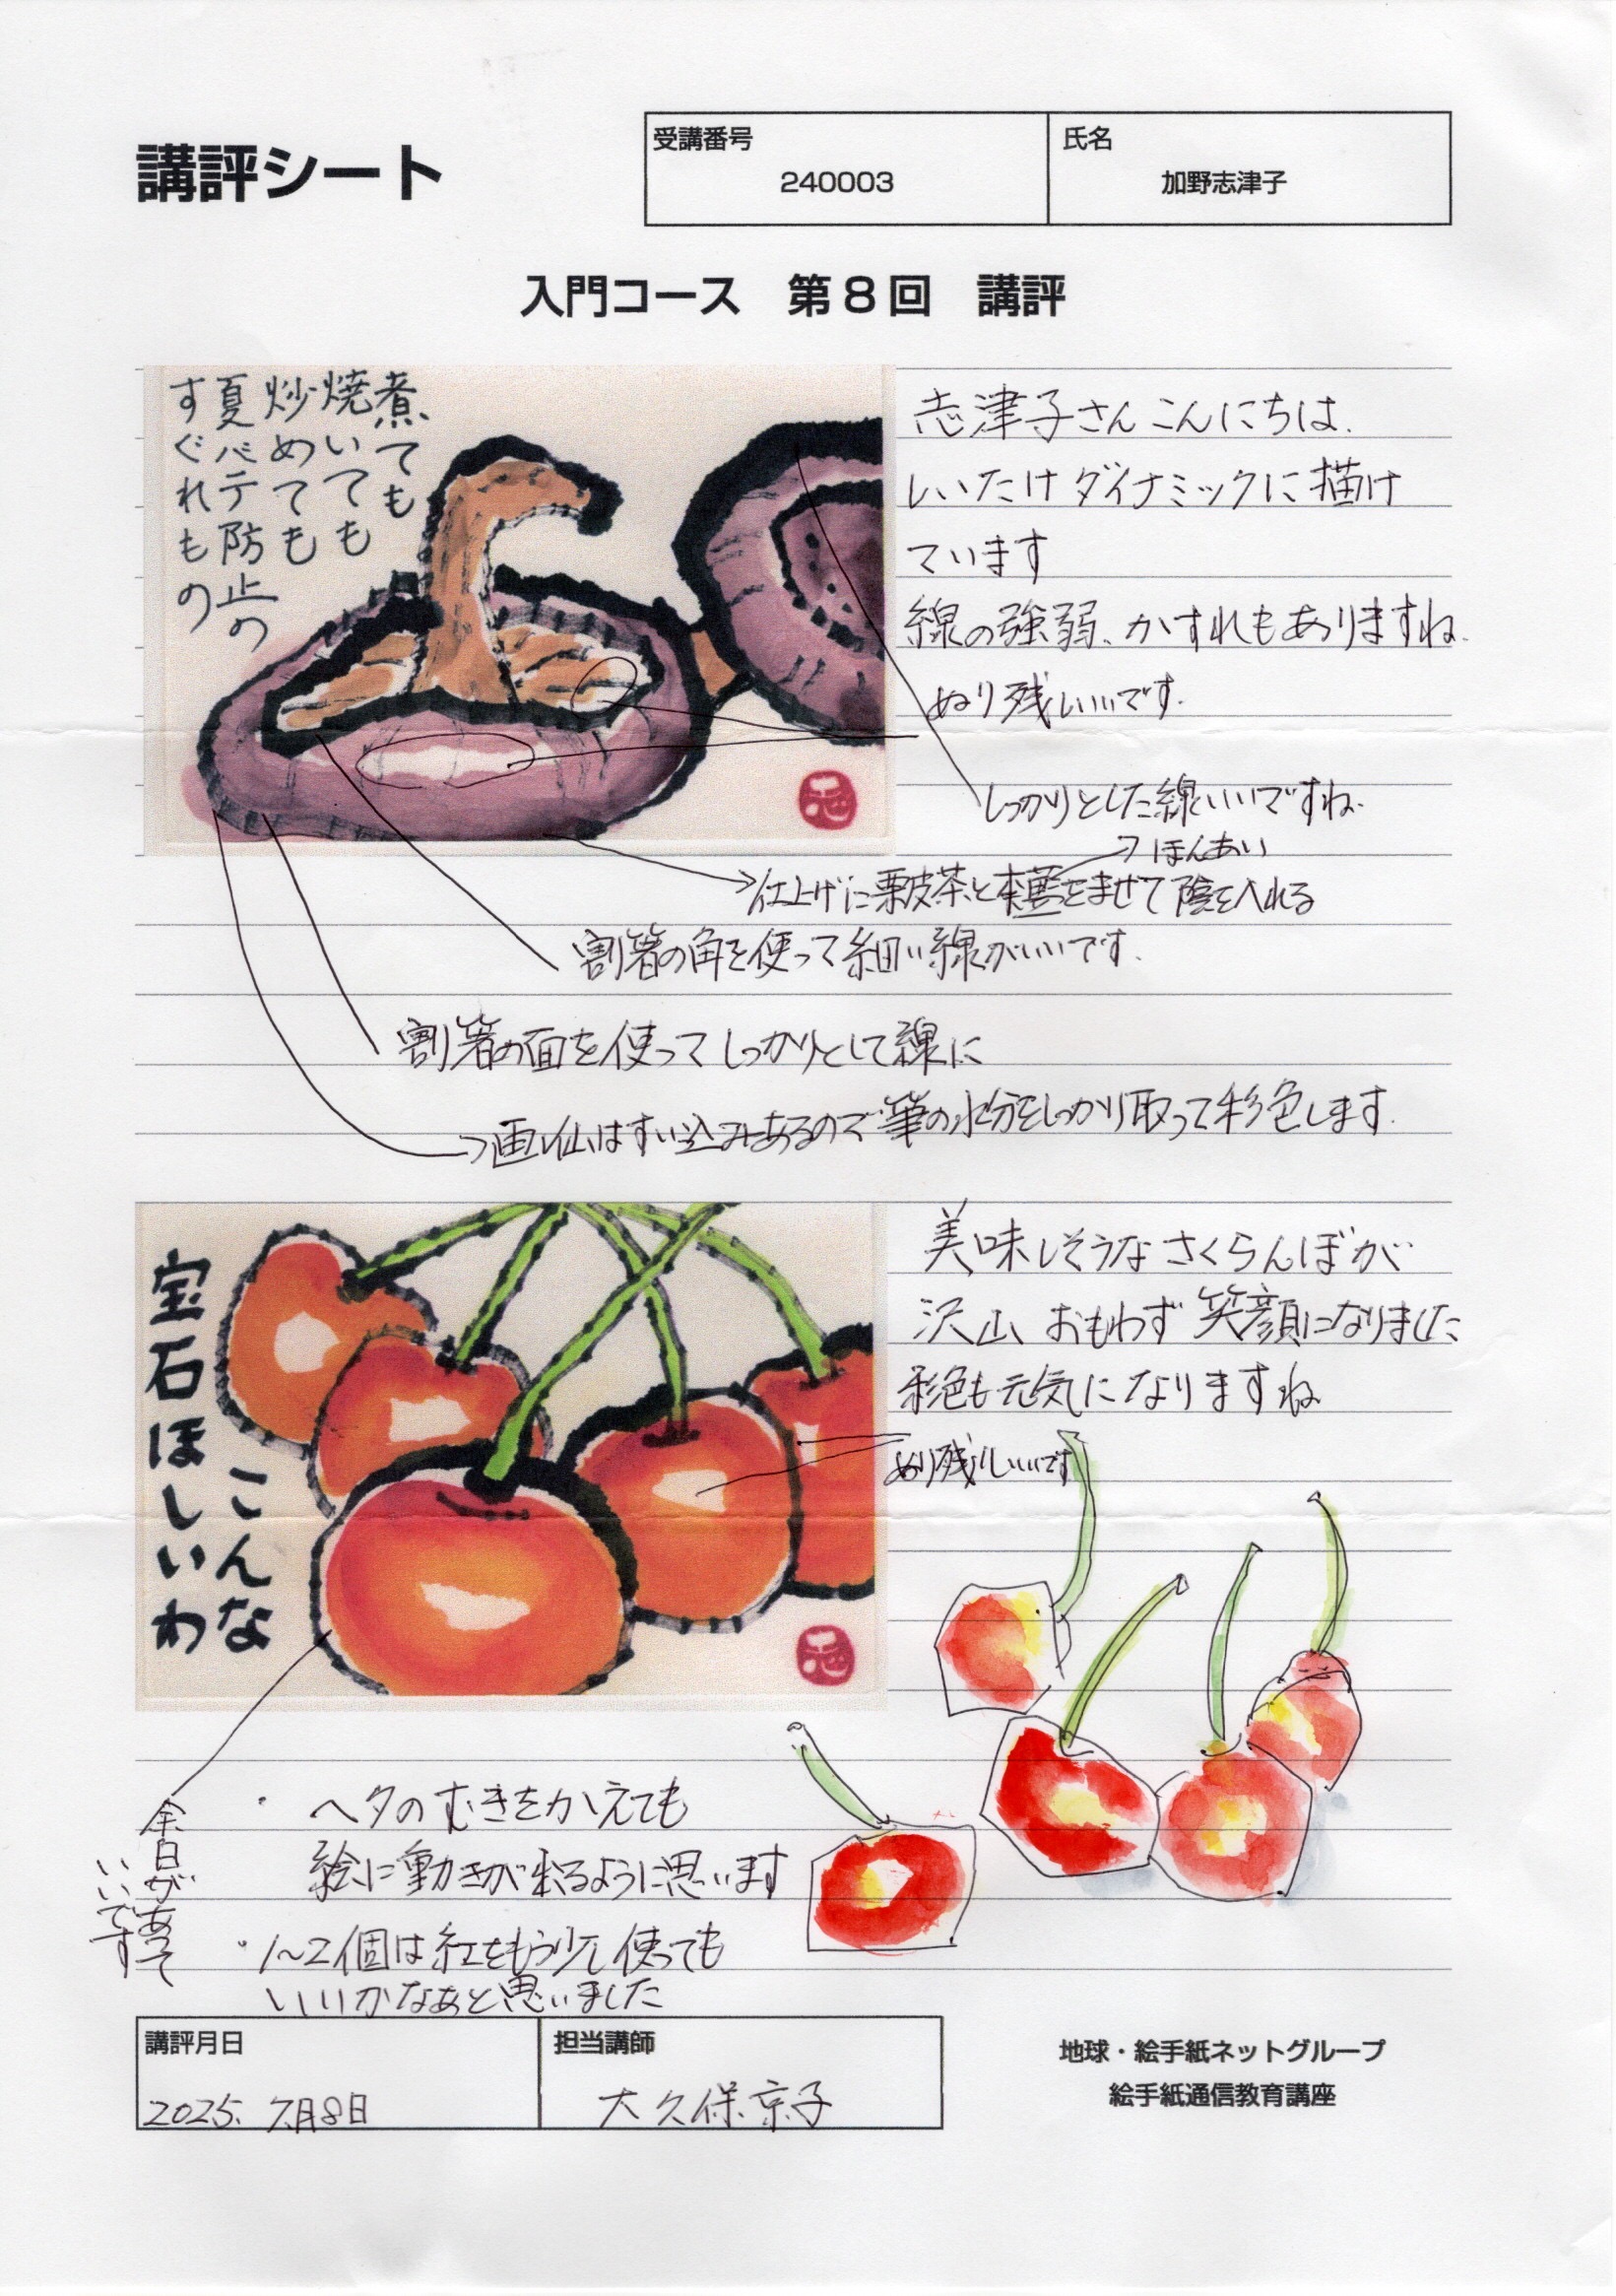 講評シート
受講番号
240003
氏名
加野志津子
入門コース 第8回 講評
煮ても
焼いても
炒めても
夏バテ防止の
すぐれもの
志津子さんこんにちは、
しいたけダイナミックに描け
ています
線の強弱、かすれもありますね、
ぬり残しいいです。
しっかりとした線いいですね、
ほんあい
仕上げに栗皮茶と本藍をまぜて陰を入れる
割箸の角を使って細い線がいいです、
割箸の面を使ってしっかりとして線に
画仙はすい込みあるので筆の水分をしっかり取って彩色します、
こんな
宝石ほしいわ
美味しそうなさくらんぼが
沢山 おもわず笑顔になりました
彩色も元気になりますね
ぬり残しいいです
余白があって
いいです
・ヘタのむきをかえても
絵に動きが出るように思います
・1〜2個は紅をもう少し使っても
いいかなぁと思いました
講評月日
2025. 7月8日
担当講師
大久保京子
地球・絵手紙ネットグループ
絵手紙通信教育講座